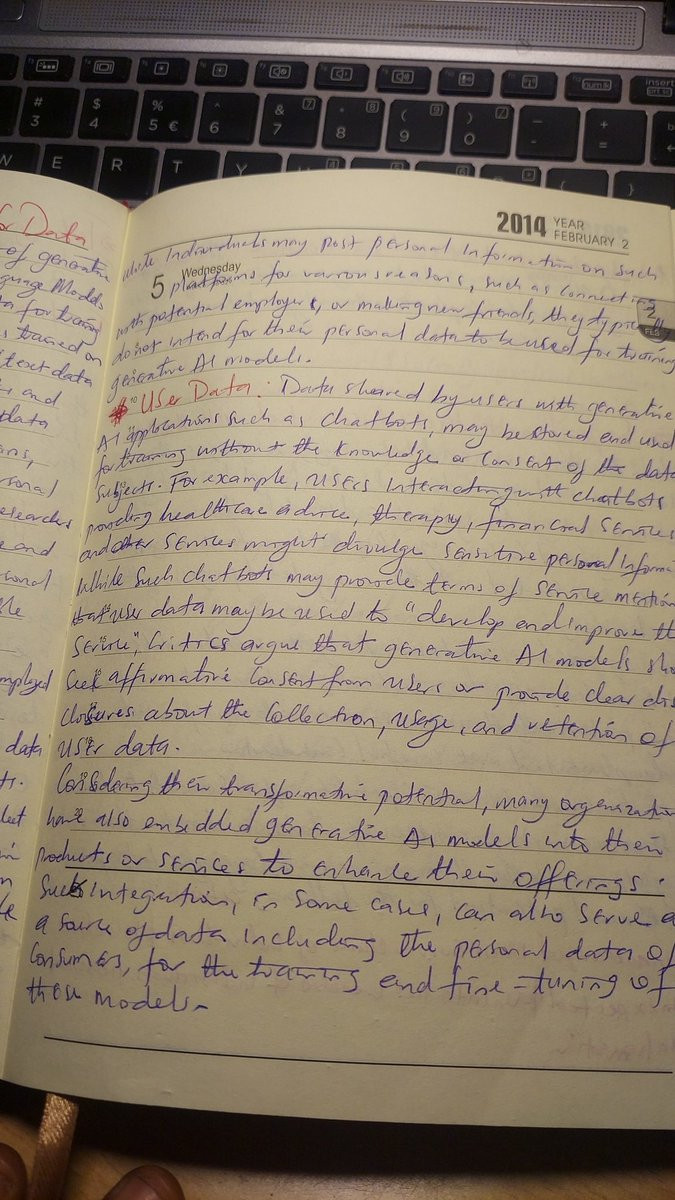 insert
prt sc
num lk
# 3
$ 4
% 5 €
^ 6
& 7
* 8
( 9
) 0
- -
+ =
W E R T Y
2014 YEAR
FEBRUARY 2
5 Wednesday
Data
of generative
guage Models
for training
trained on
text data
and
data
ans,
rsonal
esearchers
and
rsonal
mployed
data
lect
while Individuals may post personal Information on such
platforms for various reasons, such as connecting
with potential employers, or making new friends, they typically
do not intend for their personal data to be used for training
generative AI models.
# User Data: Data shared by users with generative
AI applications such as chatbots, may be stored and used
for training without the knowledge or consent of the data
Subjects. For example, users interacting with chatbots
providing healthcare advice, therapy, financial services
and other services might divulge sensitive personal Informa
While such chatbots may provide terms of service mention
that user data may be used to "develop and improve the
service", critics argue that generative AI models sho
seek affirmative consent from users or provide clear dis
closures about the collection, usage, and retention of
user data.
Considering their transformative potential, many organization
have also embedded generative AI models into their
products or services to enhance their offerings.
Such Integration, in some cases, can also serve a
a source of data including the personal data of
Consumers, for the training and fine-tuning of
these models.